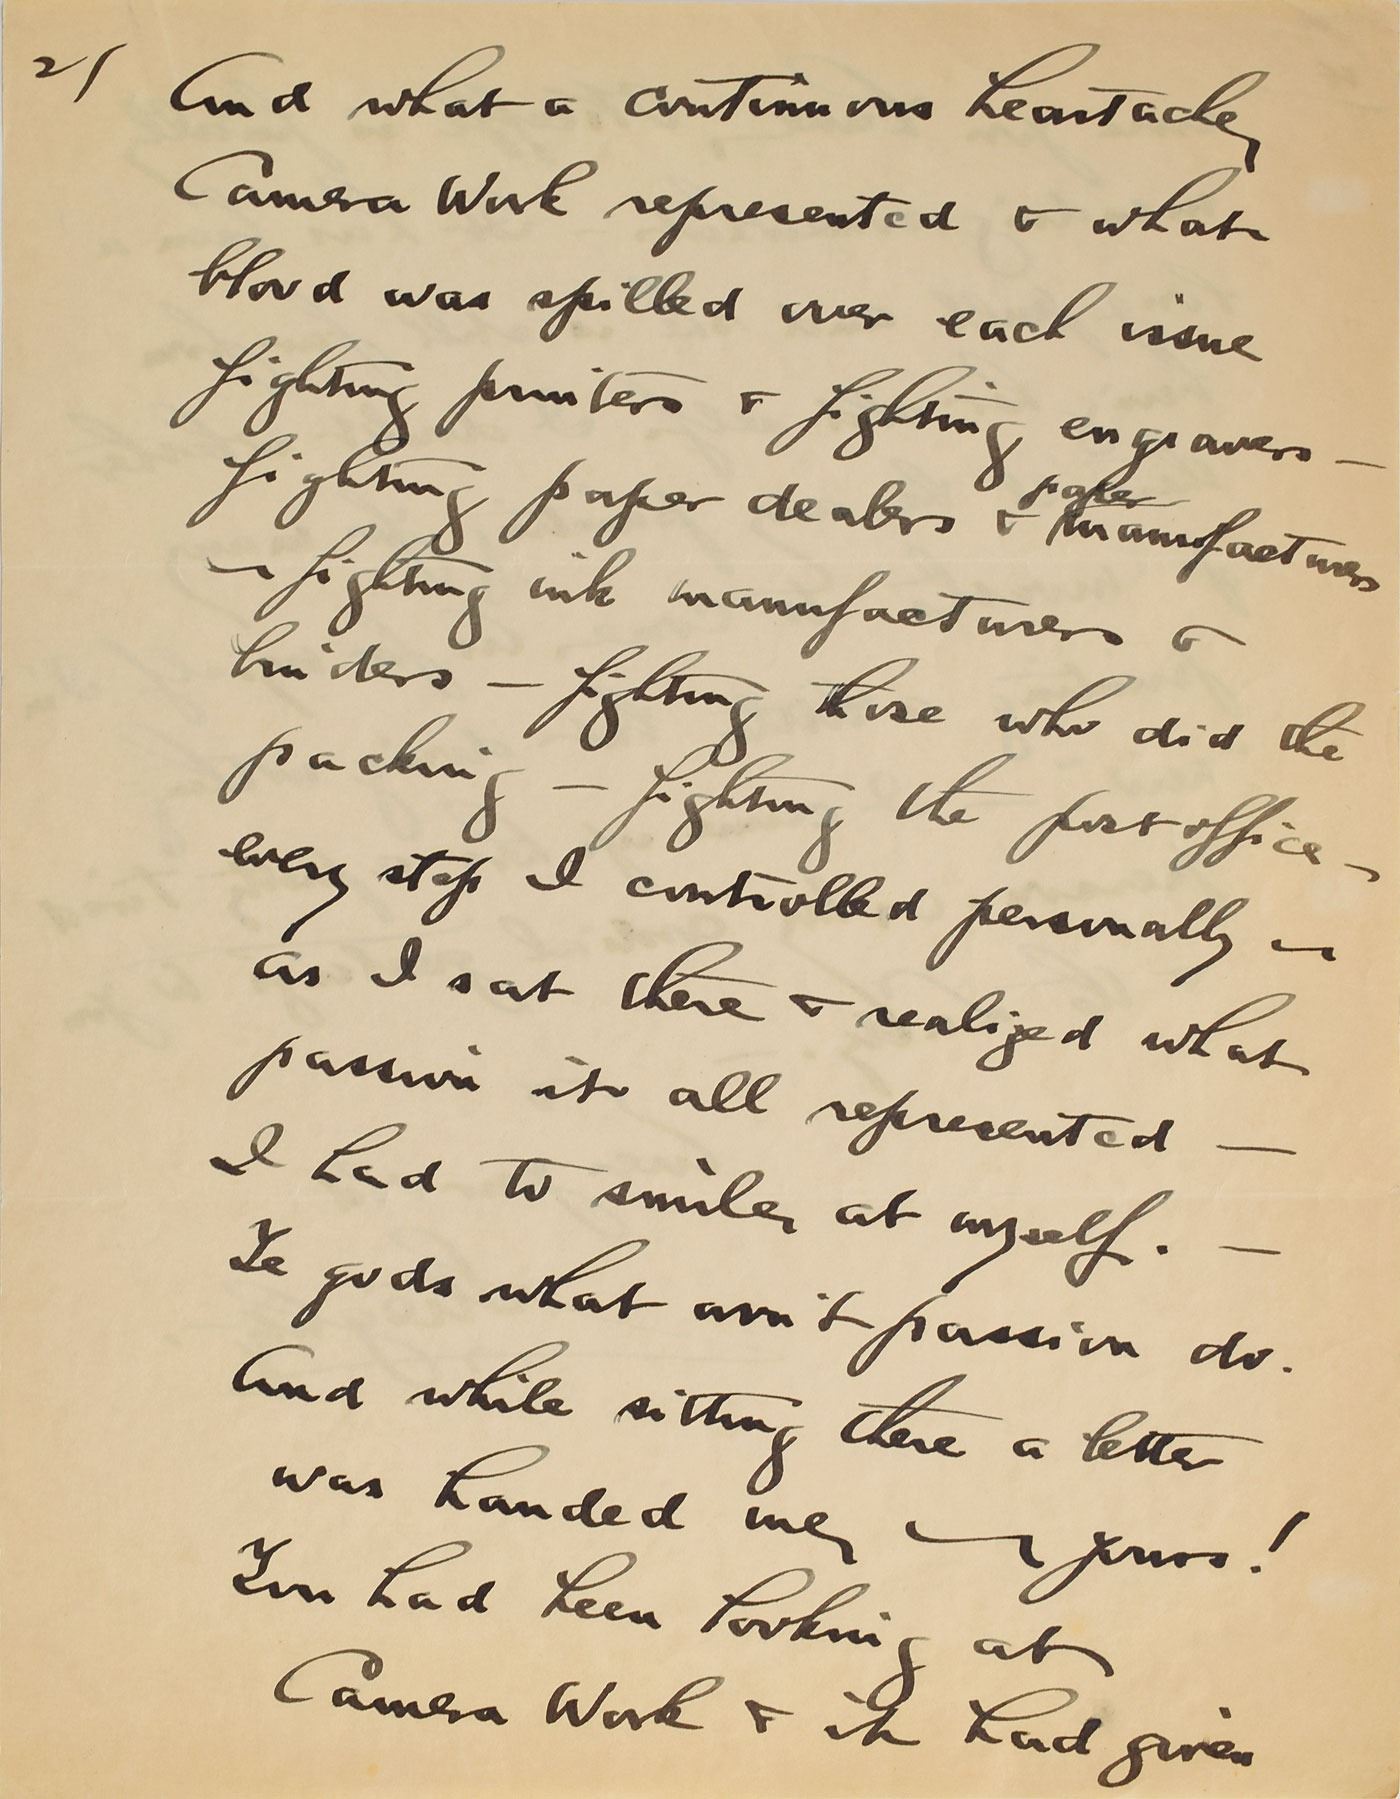 2/
And what a continuous heartache
Camera Work represented & what
blood was spilled over each issue
fighting printers & fighting engravers —
fighting paper dealers & paper manufacturers
— fighting ink manufacturers &
binders — fighting those who did the
packing — fighting the post office —
every step I controlled personally —
as I sat there & realized what
passion it all represented —
I had to smile at myself. —
Ye gods what won't passion do.
And while sitting there a letter
was handed me — yours!
You had been looking at
Camera Work & it had given